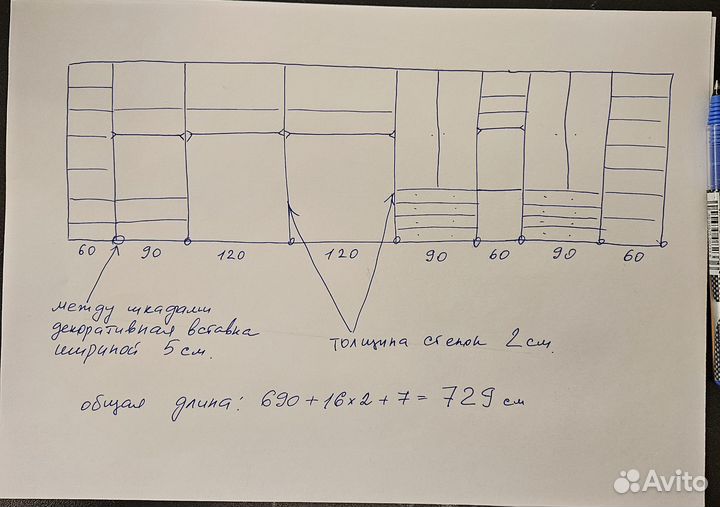 60 90 120 120 90 60 90 60
между шкафами
декоративная вставка
шириной 5 см.
толщина стенок 2 см.
общая длина: 690 + 16 × 2 + 7 = 729 см
Avito